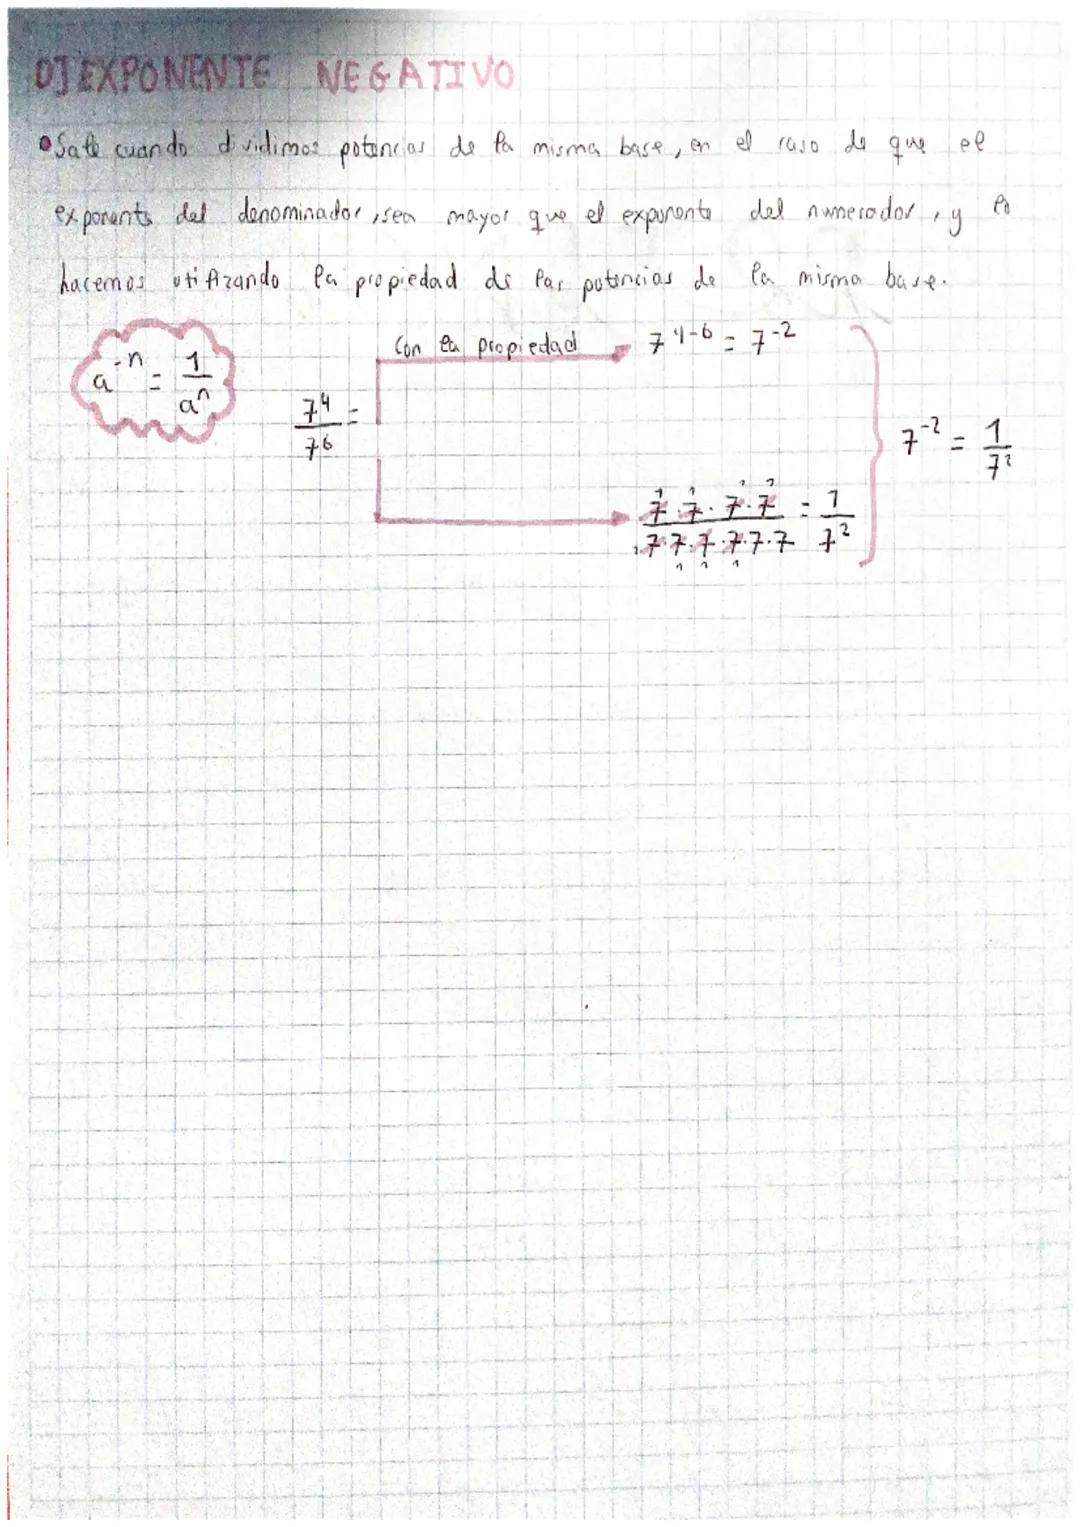 D] EXPONENTE NEGATIVO
• Sale cuando dividimos potencias de la misma base, en el caso de que el
exponente del denominador, sea mayor que el exponente del numerador, y lo
hacemos utilizando la propiedad de las potencias de la misma base.
a^-n = 1/a^n
7^4/7^6 =
Con la propiedad → 7^4-6 = 7^-2
7·7·7·7/7·7·7·7·7·7 = 1/7^2
7^-2 = 1/7^2